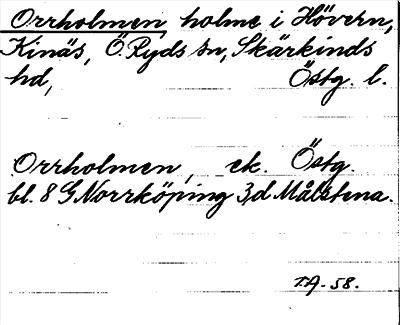 Orrholmen holme i Hövern,
Kinäs, Ö. Ryds sn, Skärkinds
hd, Östg. l.
Orrholmen, ek. Östg.
bl. 8 G Norrköping 3d Målstena.
T.A. 58.